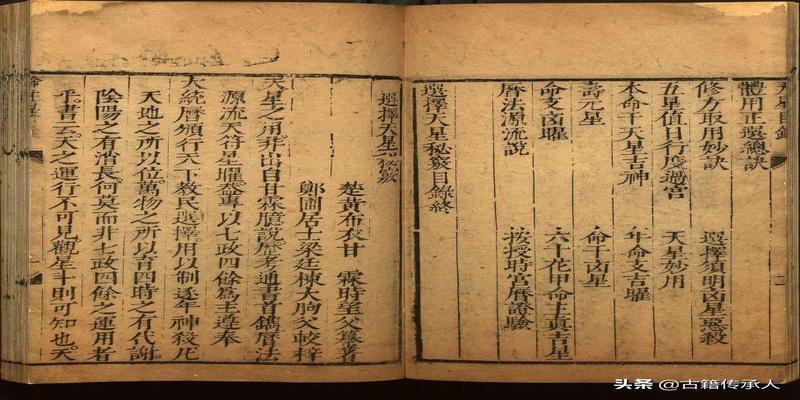 體用正選總訣
修方取用妙訣　選擇須明凶星惡殺
五星值日行度過宮　天星妙用
本命干天星吉神　年命支吉曜
壽元星　命干凶星
命支凶曜　六十花甲命主真吉星
曆法源流說　按授時官曆證驗
選擇天星秘竅目錄終
選擇天星秘竅
楚黃布衣甘　霖時至父纂著
鄭圃居士梁廷棟大胸父較梓
天星之用非出自甘霖臆說歷考通書首鐫曆法
源流天符星曜益專以七政四餘為主遵奉
大統曆頒行天下教民選擇用以制逐年神殺凡
天地之所以位萬物之所以育四時之有代謝
陰陽之有消長何莫而非七政四餘之運用者
乎書云天之運行不可見觀星斗則可知也天
头条 @古籍传承人